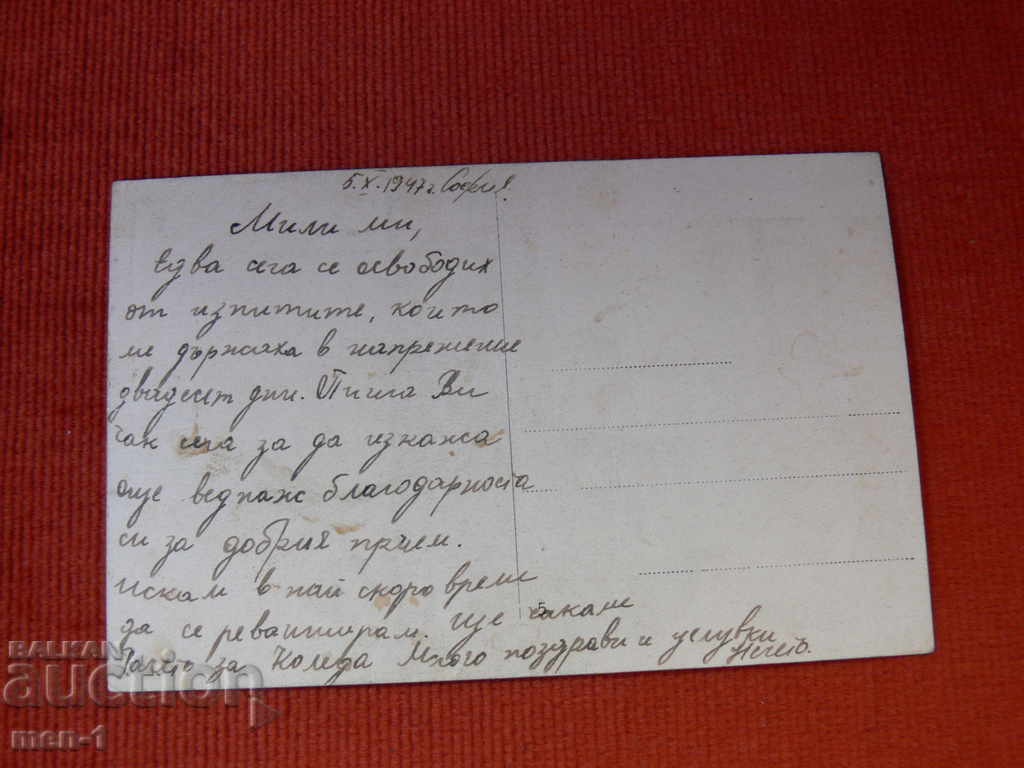 5.X.1947 г. София
Мили ми,
Едва сега се освободих
от изпитите, които
ме държаха в напрежение
двадесет дни. Пиша Ви
чак сега за да изкажа
още веднаж благодарноста
си за добрия прием.
Искам в най скоро време
да се реванширам. Ще чакаме
за Коледа Много поздрави и целувки
5
BALKAN
auction
men-1